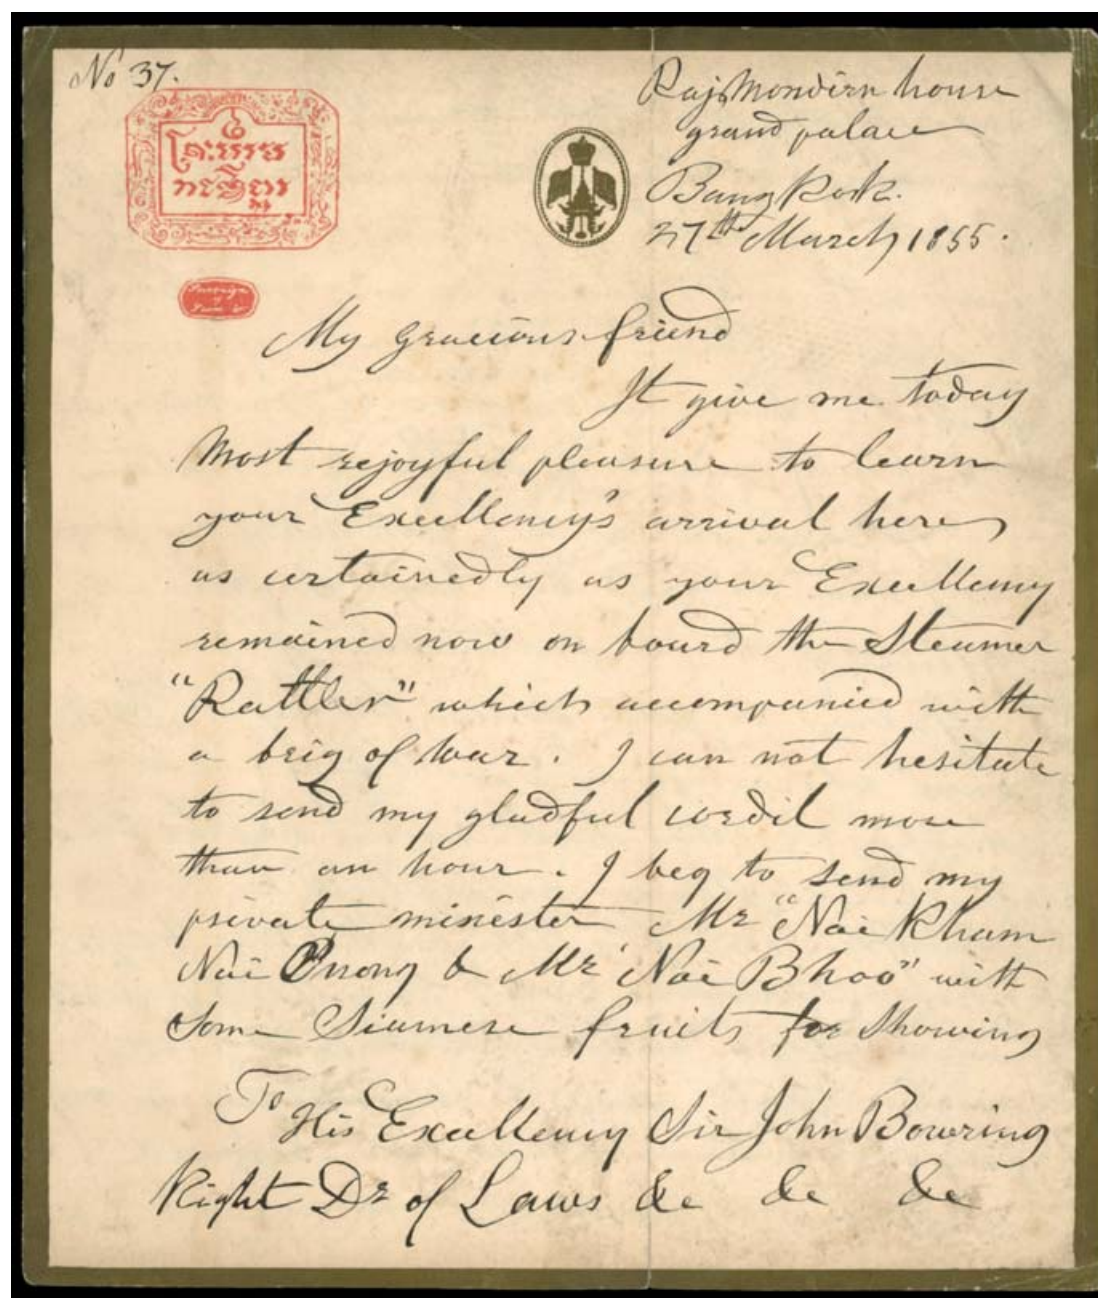 No 37.
Rajmondirn house
grand palace
Bangkok.
27th March 1855.
My gracious friend
It give me today
most rejoyful pleasure to learn
your Excellency's arrival here
as certainedly as your Excellency
remained now on board the Steamer
"Rattler" which accompanied with
a brig of war. I can not hesitate
to send my gladful cordil more
than an hour. I beg to send my
private minister Mr "Nai Kham
Nai Pnong & Mr "Nai Bhoo" with
some Siamese fruits for showing
To
His Excellency Sir John Bowring
Right Dr of Laws &c &c &c